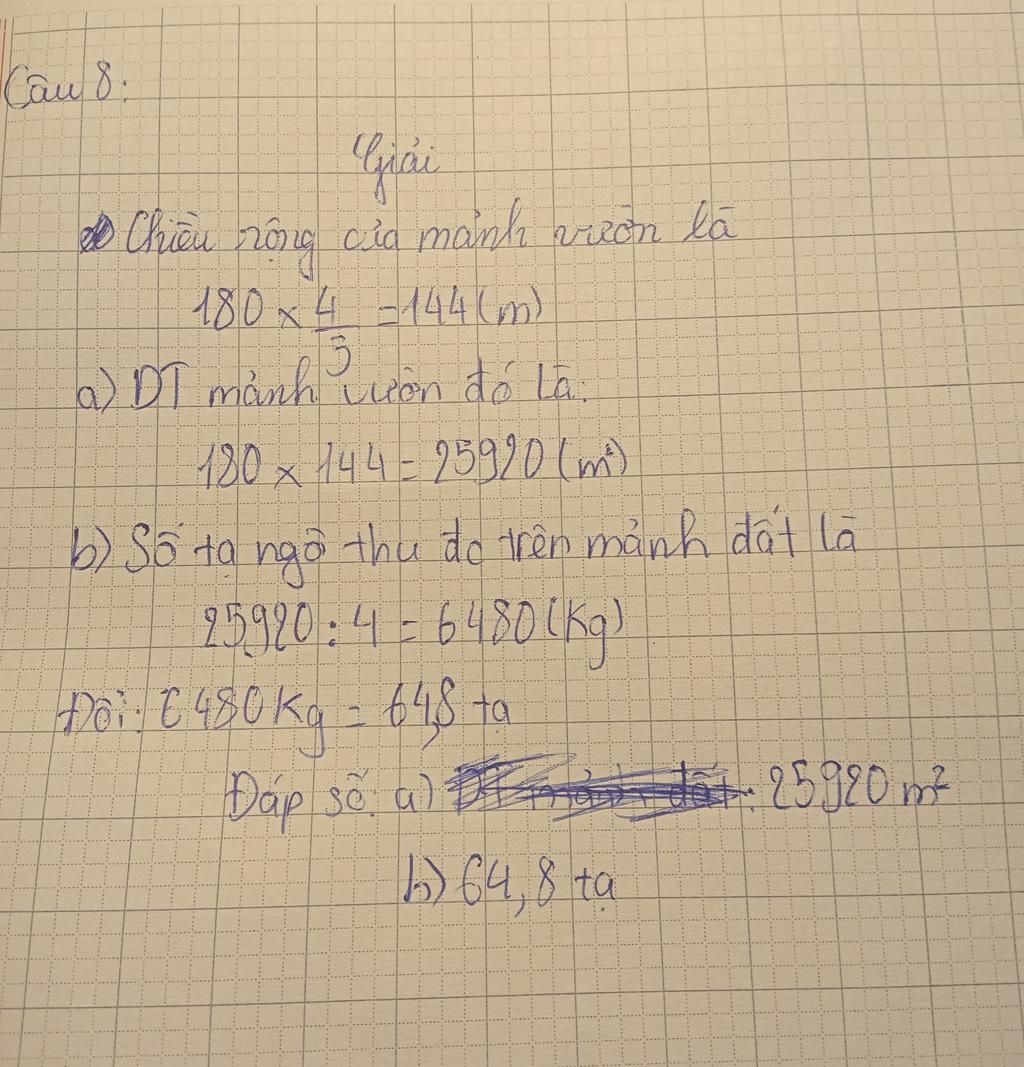 Câu 8:
Giải
Chiều rộng của mảnh vườn là
180 × 4/5 = 144 (m)
a) DT mảnh vườn đó là:
180 × 144 = 25920 (m²)
b) Số tạ ngô thu đc trên mảnh đất là
25920 : 4 = 6480 (Kg)
Đổi: 6480 Kg = 64,8 tạ
Đáp số: a) : 25920 m²
b) 64,8 tạ